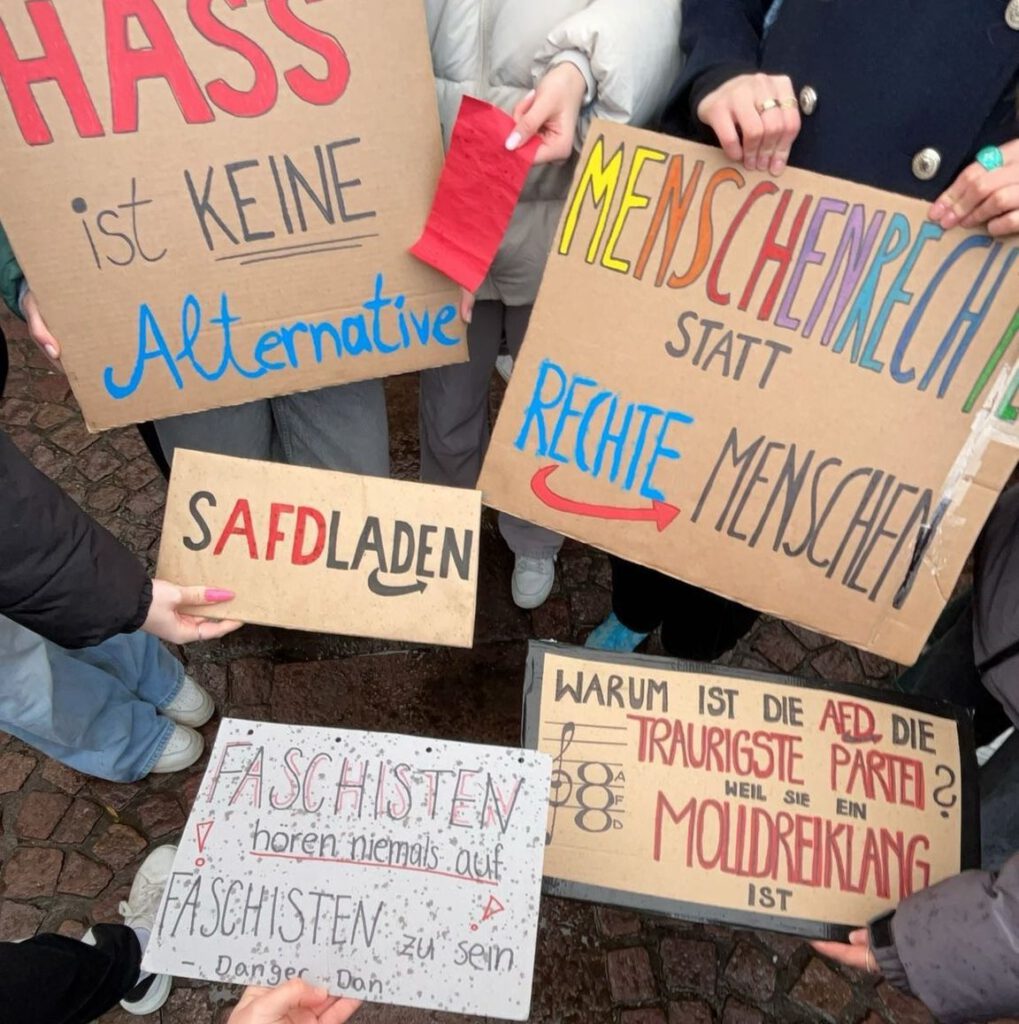 HASS
ist KEINE
Alternative
MENSCHENRECHTE
STATT
RECHTE MENSCHEN
SAFDLADEN
WARUM IST DIE AFD DIE
TRAURIGSTE PARTEI?
WEIL SIE EIN
MOLLDREIKLANG
IST
A
F
D
FASCHISTEN
hören niemals auf
FASCHISTEN zu sein
- Danger Dan